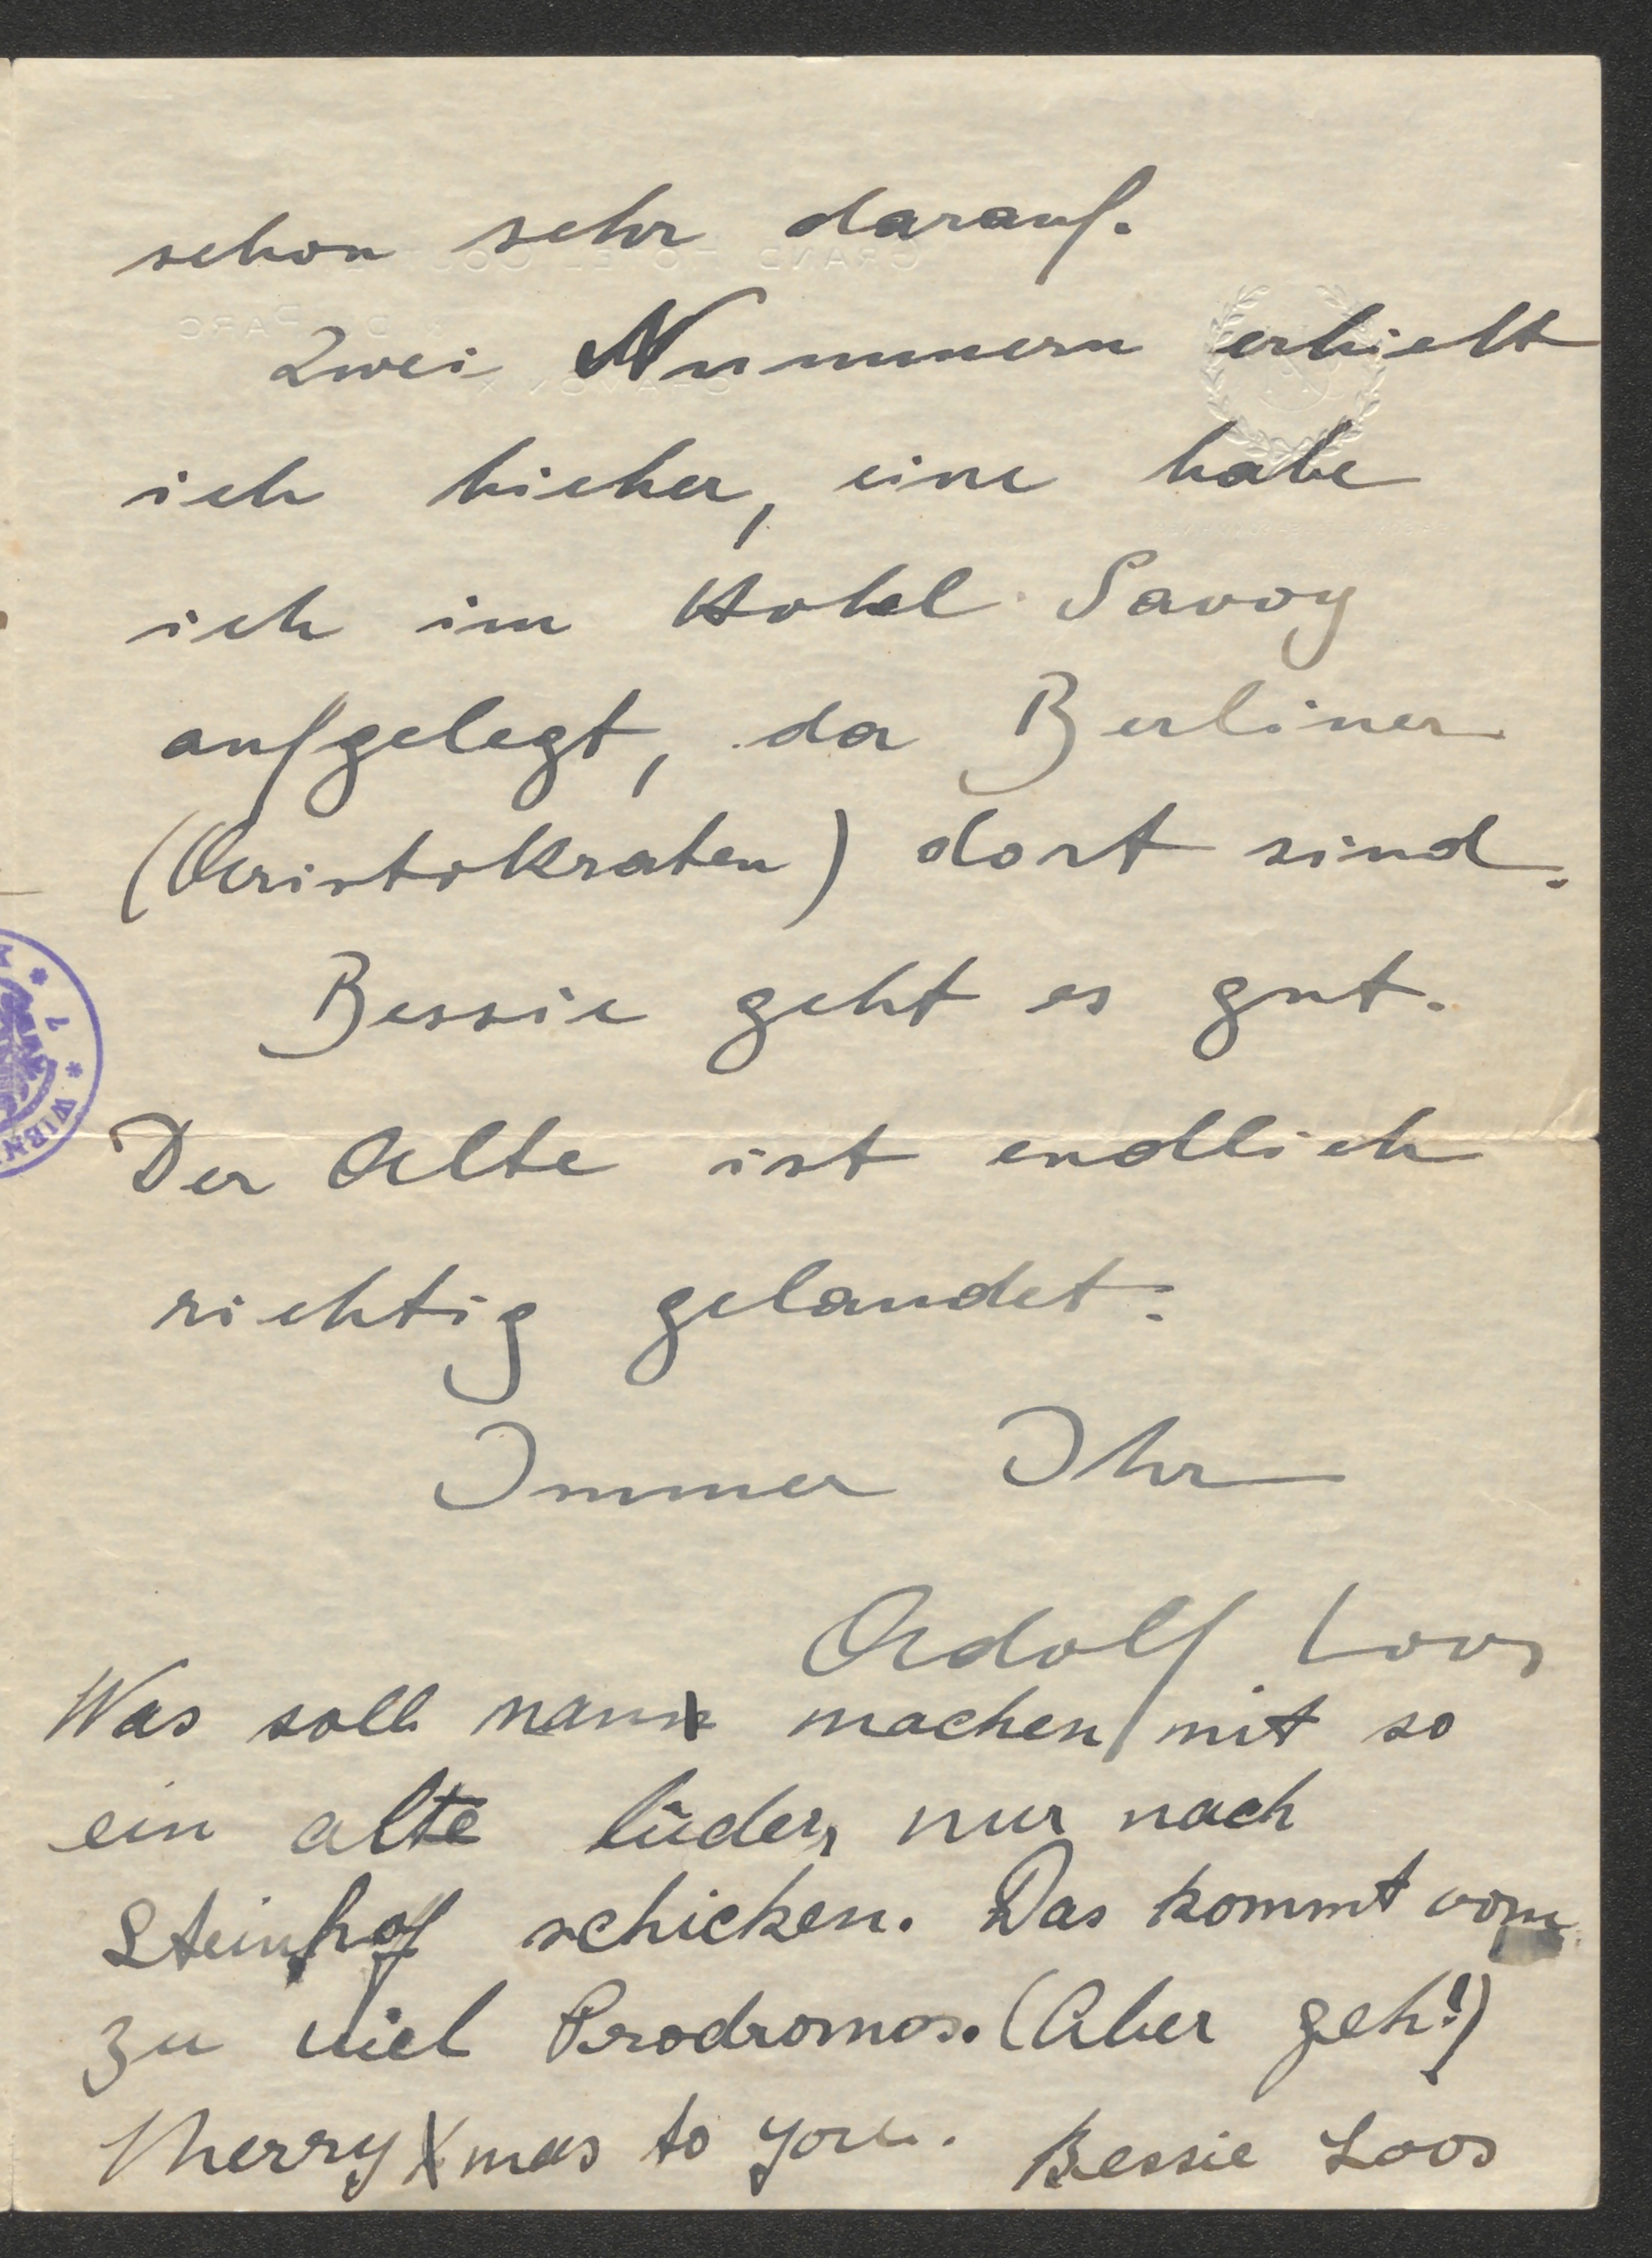 schon sehr darauf.
Zwei Nummern erhielt
ich hieher, eine habe
ich im Hotel Savoy
aufgelegt, da Berliner
(Aristokraten) dort sind.
Bessie geht es gut.
Der Alte ist endlich
richtig gelandet:
Immer Ihr
Adolf Loos
Was soll man machen mit so
ein alte lüder, nur nach
Steinhof schicken. Das kommt vom
zu viel Prodromos. (Aber geh!)
Merry Xmas to you. Bessie Loos
WIEN